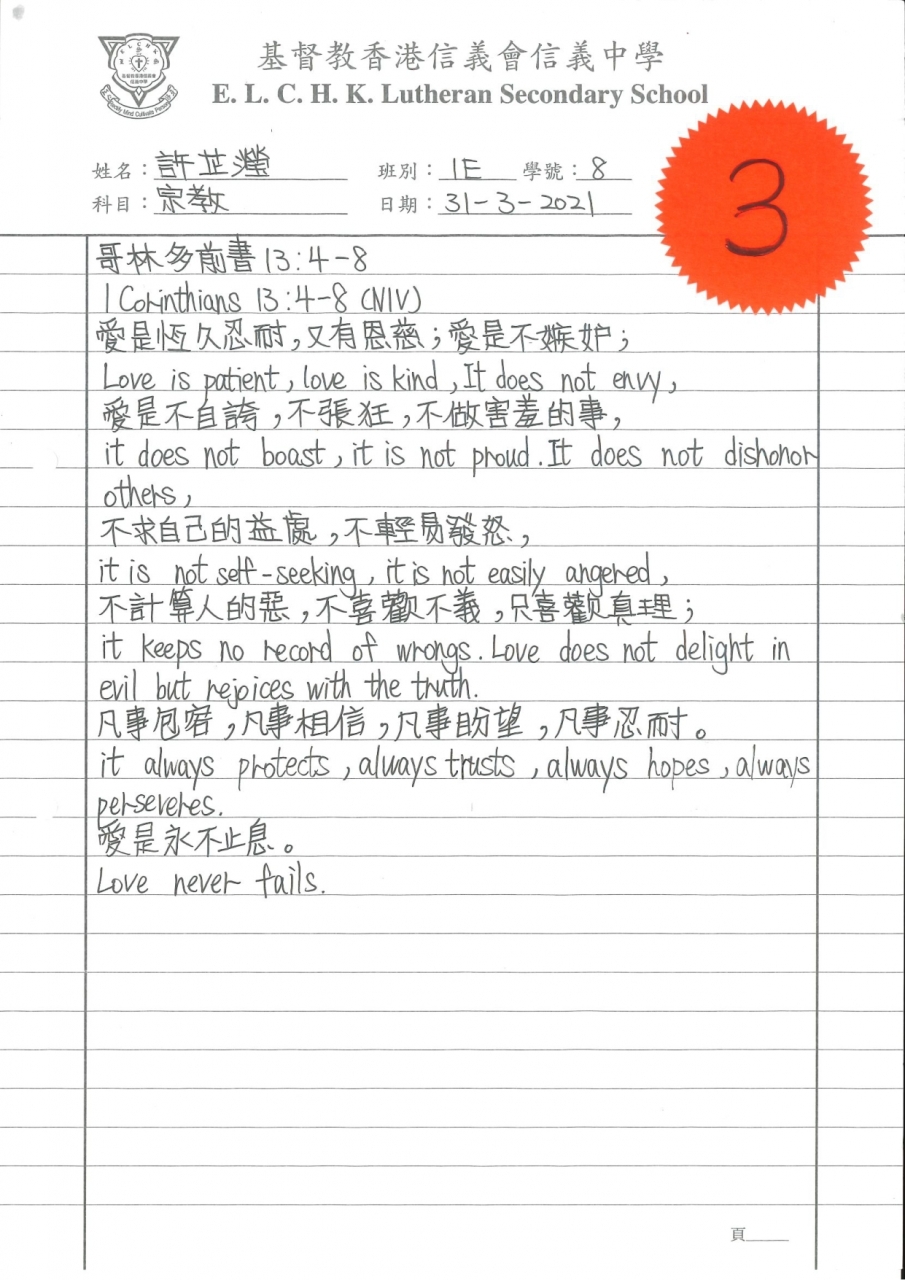 基督教香港信義會信義中學
E. L. C. H. K. Lutheran Secondary School
姓名：許芷瀅 班別：1E 學號：8
科目：宗教 日期：31-3-2021
3
哥林多前書13:4-8
1 Corinthians 13:4-8 (NIV)
愛是恆久忍耐,又有恩慈;愛是不嫉妒;
Love is patient, love is kind, It does not envy,
愛是不自誇,不張狂,不做害羞的事,
it does not boast, it is not proud. It does not dishonor
others,
不求自己的益處,不輕易發怒,
it is not self-seeking, it is not easily angered,
不計算人的惡,不喜歡不義,只喜歡真理;
it keeps no record of wrongs. Love does not delight in
evil but rejoices with the truth.
凡事包容,凡事相信,凡事盼望,凡事忍耐。
it always protects, always trusts, always hopes, always
perseveres.
愛是永不止息。
Love never fails.
頁